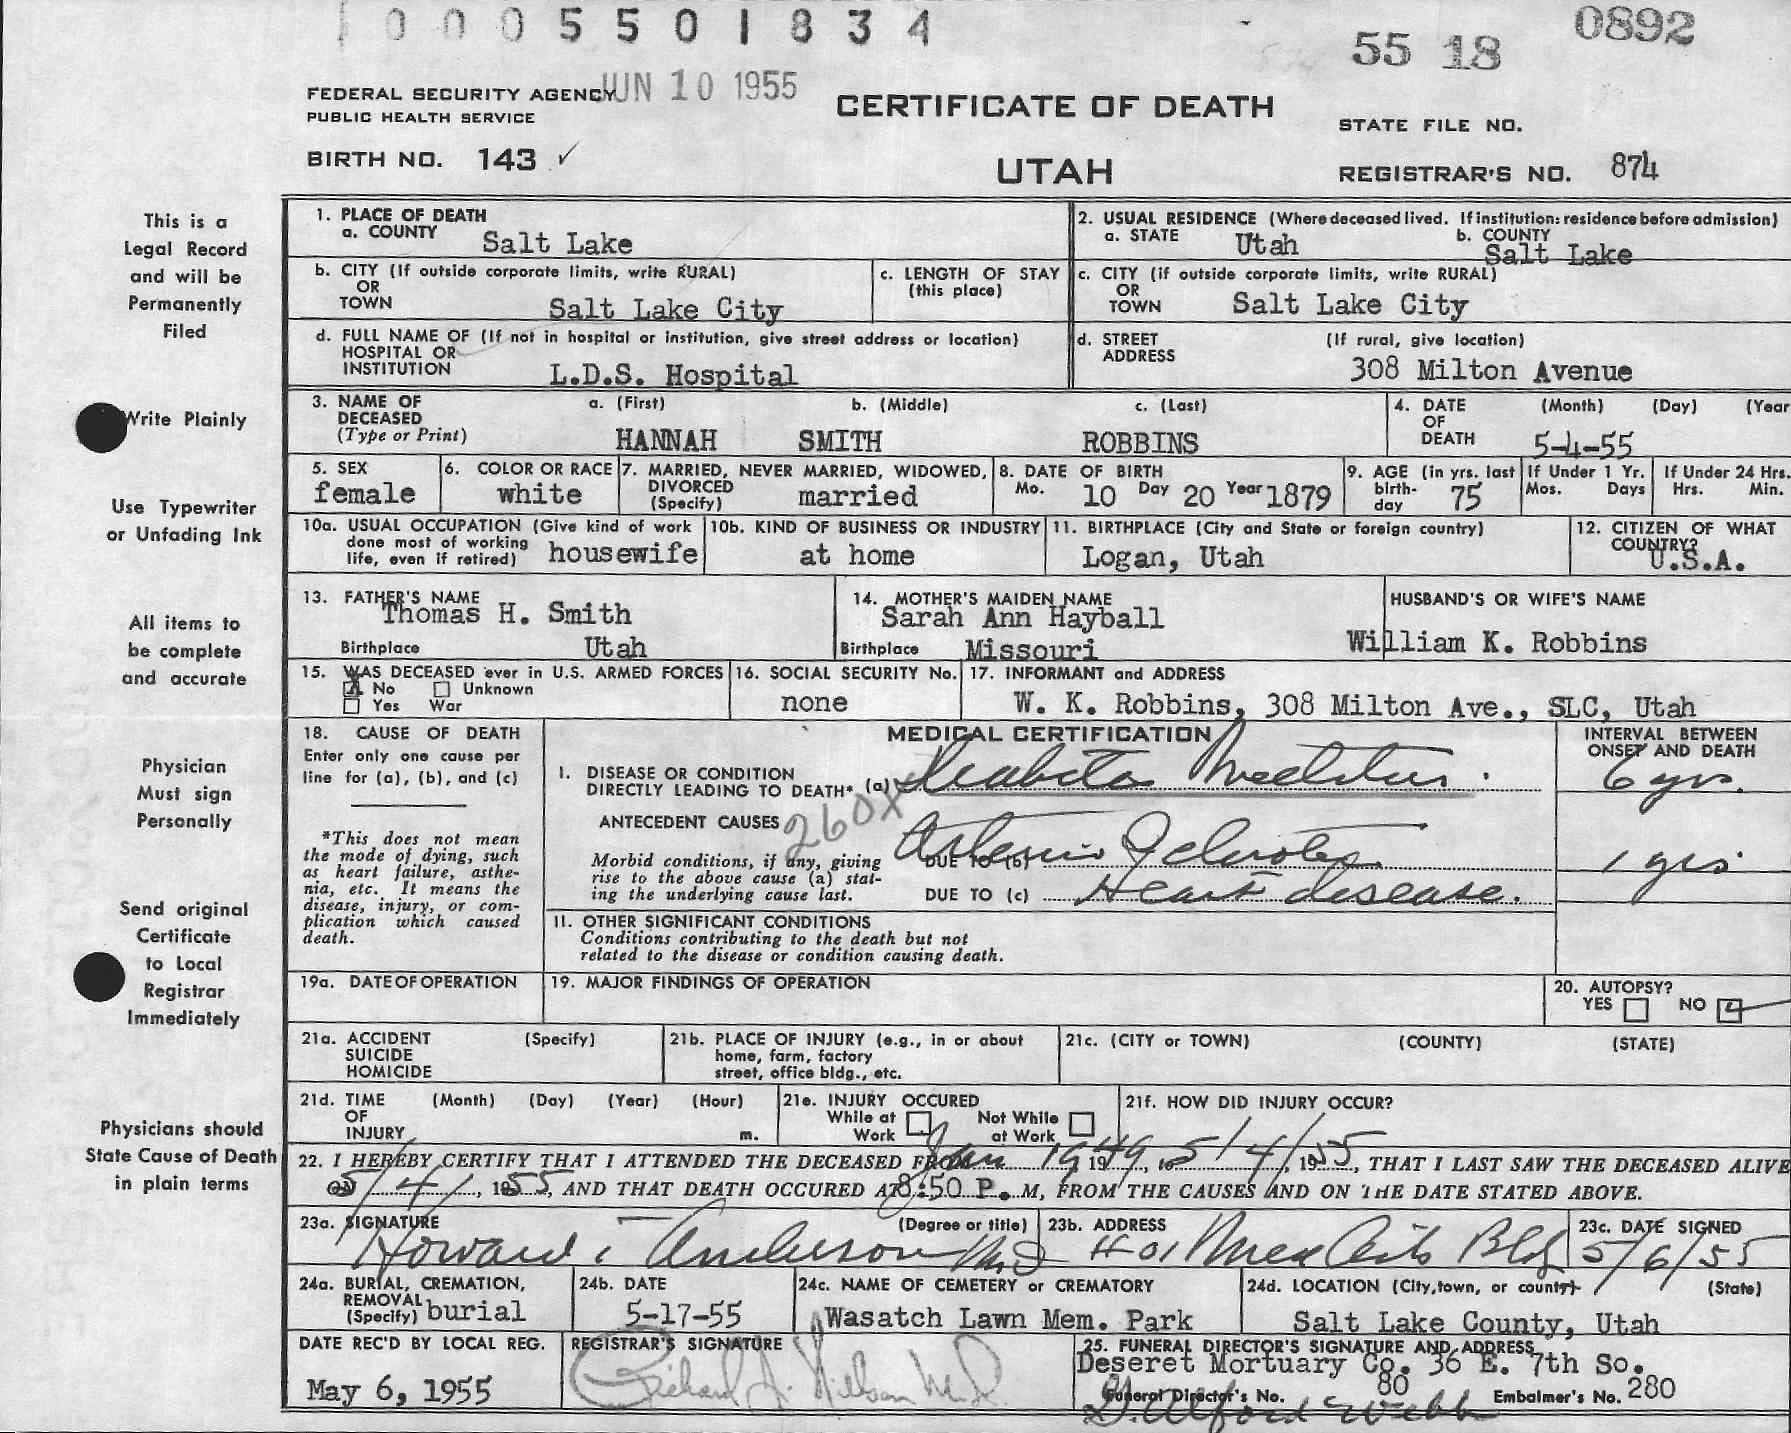 0005501834
55 18 0892
JUN 10 1955
FEDERAL SECURITY AGENCY
PUBLIC HEALTH SERVICE
CERTIFICATE OF DEATH
STATE FILE NO.
BIRTH NO. 143 ✓
UTAH
REGISTRAR'S NO. 874
This is a
Legal Record
and will be
Permanently
Filed
Write Plainly
Use Typewriter
or Unfading Ink
All items to
be complete
and accurate
Physician
Must sign
Personally
Send original
Certificate
to Local
Registrar
Immediately
Physicians should
State Cause of Death
in plain terms
1. PLACE OF DEATH
a. COUNTY Salt Lake
2. USUAL RESIDENCE (Where deceased lived. If institution: residence before admission)
a. STATE Utah b. COUNTY Salt Lake
b. CITY (If outside corporate limits, write RURAL)
OR
TOWN Salt Lake City
c. LENGTH OF STAY
(this place)
c. CITY (if outside corporate limits, write RURAL)
OR
TOWN Salt Lake City
d. FULL NAME OF (If not in hospital or institution, give street address or location)
HOSPITAL OR
INSTITUTION L.D.S. Hospital
d. STREET (If rural, give location)
ADDRESS
308 Milton Avenue
3. NAME OF a. (First) b. (Middle) c. (Last)
DECEASED
(Type or Print) HANNAH SMITH ROBBINS
4. DATE (Month) (Day) (Year
OF
DEATH 5-4-55
5. SEX
female
6. COLOR OR RACE
white
7. MARRIED, NEVER MARRIED, WIDOWED,
DIVORCED
(Specify) married
8. DATE OF BIRTH
Mo. 10 Day 20 Year 1879
9. AGE (in yrs. last
birth-
day 75
If Under 1 Yr.
Mos. Days
If Under 24 Hrs.
Hrs. Min.
10a. USUAL OCCUPATION (Give kind of work
done most of working
life, even if retired) housewife
10b. KIND OF BUSINESS OR INDUSTRY
at home
11. BIRTHPLACE (City and State or foreign country)
Logan, Utah
12. CITIZEN OF WHAT
COUNTRY?
U.S.A.
13. FATHER'S NAME
Thomas H. Smith
Birthplace Utah
14. MOTHER'S MAIDEN NAME
Sarah Ann Hayball
Birthplace Missouri
HUSBAND'S OR WIFE'S NAME
William K. Robbins
15. WAS DECEASED ever in U.S. ARMED FORCES
X No Unknown
Yes War
16. SOCIAL SECURITY No.
none
17. INFORMANT and ADDRESS
W. K. Robbins, 308 Milton Ave., SLC, Utah
18. CAUSE OF DEATH
Enter only one cause per
line for (a), (b), and (c)
*This does not mean
the mode of dying, such
as heart failure, asthe-
nia, etc. It means the
disease, injury, or com-
plication which caused
death.
MEDICAL CERTIFICATION
INTERVAL BETWEEN
ONSET AND DEATH
I. DISEASE OR CONDITION
DIRECTLY LEADING TO DEATH* (a) Diabetes Mellitus. 6 yrs.
ANTECEDENT CAUSES 260X
Morbid conditions, if any, giving
rise to the above cause (a) stat-
ing the underlying cause last.
DUE TO (b) Arterio Sclerotic 1 yrs.
DUE TO (c) Heart disease.
II. OTHER SIGNIFICANT CONDITIONS
Conditions contributing to the death but not
related to the disease or condition causing death.
19a. DATE OF OPERATION
19. MAJOR FINDINGS OF OPERATION
20. AUTOPSY?
YES NO
21a. ACCIDENT (Specify)
SUICIDE
HOMICIDE
21b. PLACE OF INJURY (e.g., in or about
home, farm, factory
street, office bldg., etc.
21c. (CITY or TOWN) (COUNTY) (STATE)
21d. TIME (Month) (Day) (Year) (Hour)
OF
INJURY m.
21e. INJURY OCCURED
While at Not While
Work at Work
21f. HOW DID INJURY OCCUR?
22. I HEREBY CERTIFY THAT I ATTENDED THE DECEASED FROM Jan 1949, 1949, to 5/4/, 1955, THAT I LAST SAW THE DECEASED ALIVE
on 5/4/, 1955, AND THAT DEATH OCCURED AT 8:50 P. M, FROM THE CAUSES AND ON THE DATE STATED ABOVE.
23a. SIGNATURE (Degree or title)
Howard Anderson M.D.
23b. ADDRESS
Bldg
23c. DATE SIGNED
5/6/55
24a. BURIAL, CREMATION,
REMOVAL
(Specify) burial
24b. DATE
5-17-55
24c. NAME OF CEMETERY or CREMATORY
Wasatch Lawn Mem. Park
24d. LOCATION (City, town, or county) (State)
Salt Lake County, Utah
DATE REC'D BY LOCAL REG.
May 6, 1955
REGISTRAR'S SIGNATURE
Richard M.D.
25. FUNERAL DIRECTOR'S SIGNATURE AND ADDRESS
Deseret Mortuary Co. 36 E. 7th So.
Funeral Director's No. 80 Embalmer's No. 280
D. Alford Webb